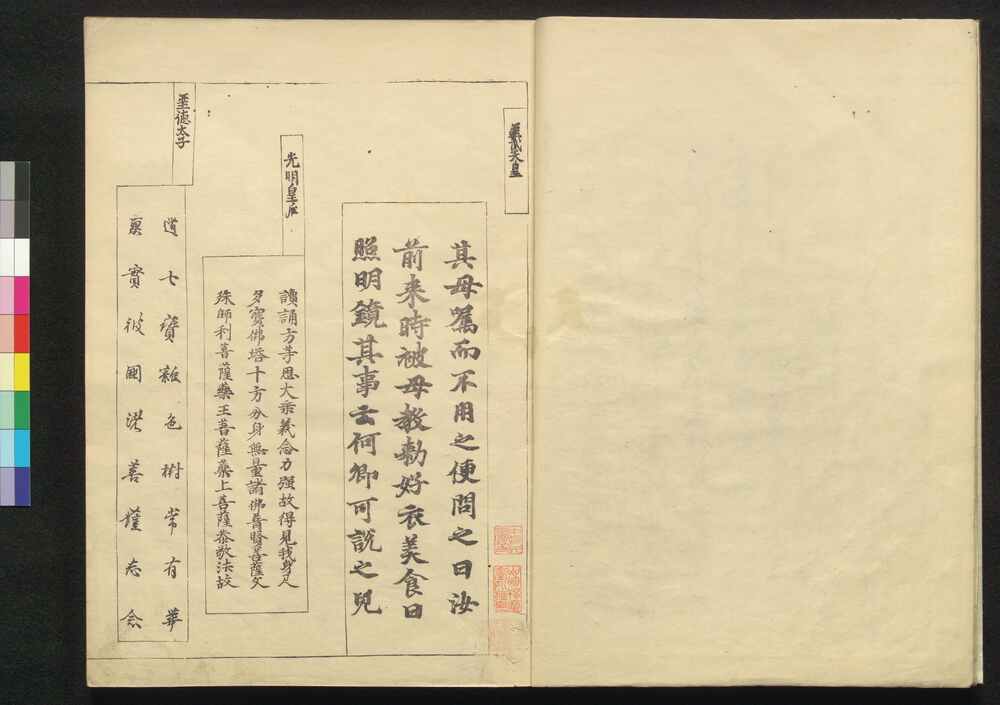 聖武天皇
其母嘱而不用之便問之曰汝
前来時被母教勅好衣美食日
照明鏡其事云何卿可説之児
光明皇后
讀誦方等思大乗義念力強故得見我身及
多寳佛塔十方分身無量諸佛普賢菩薩文
殊師利菩薩藥王菩薩藥上菩薩恭敬法故
聖徳太子
道七寶雜色樹常有華
菓實彼國
善
念